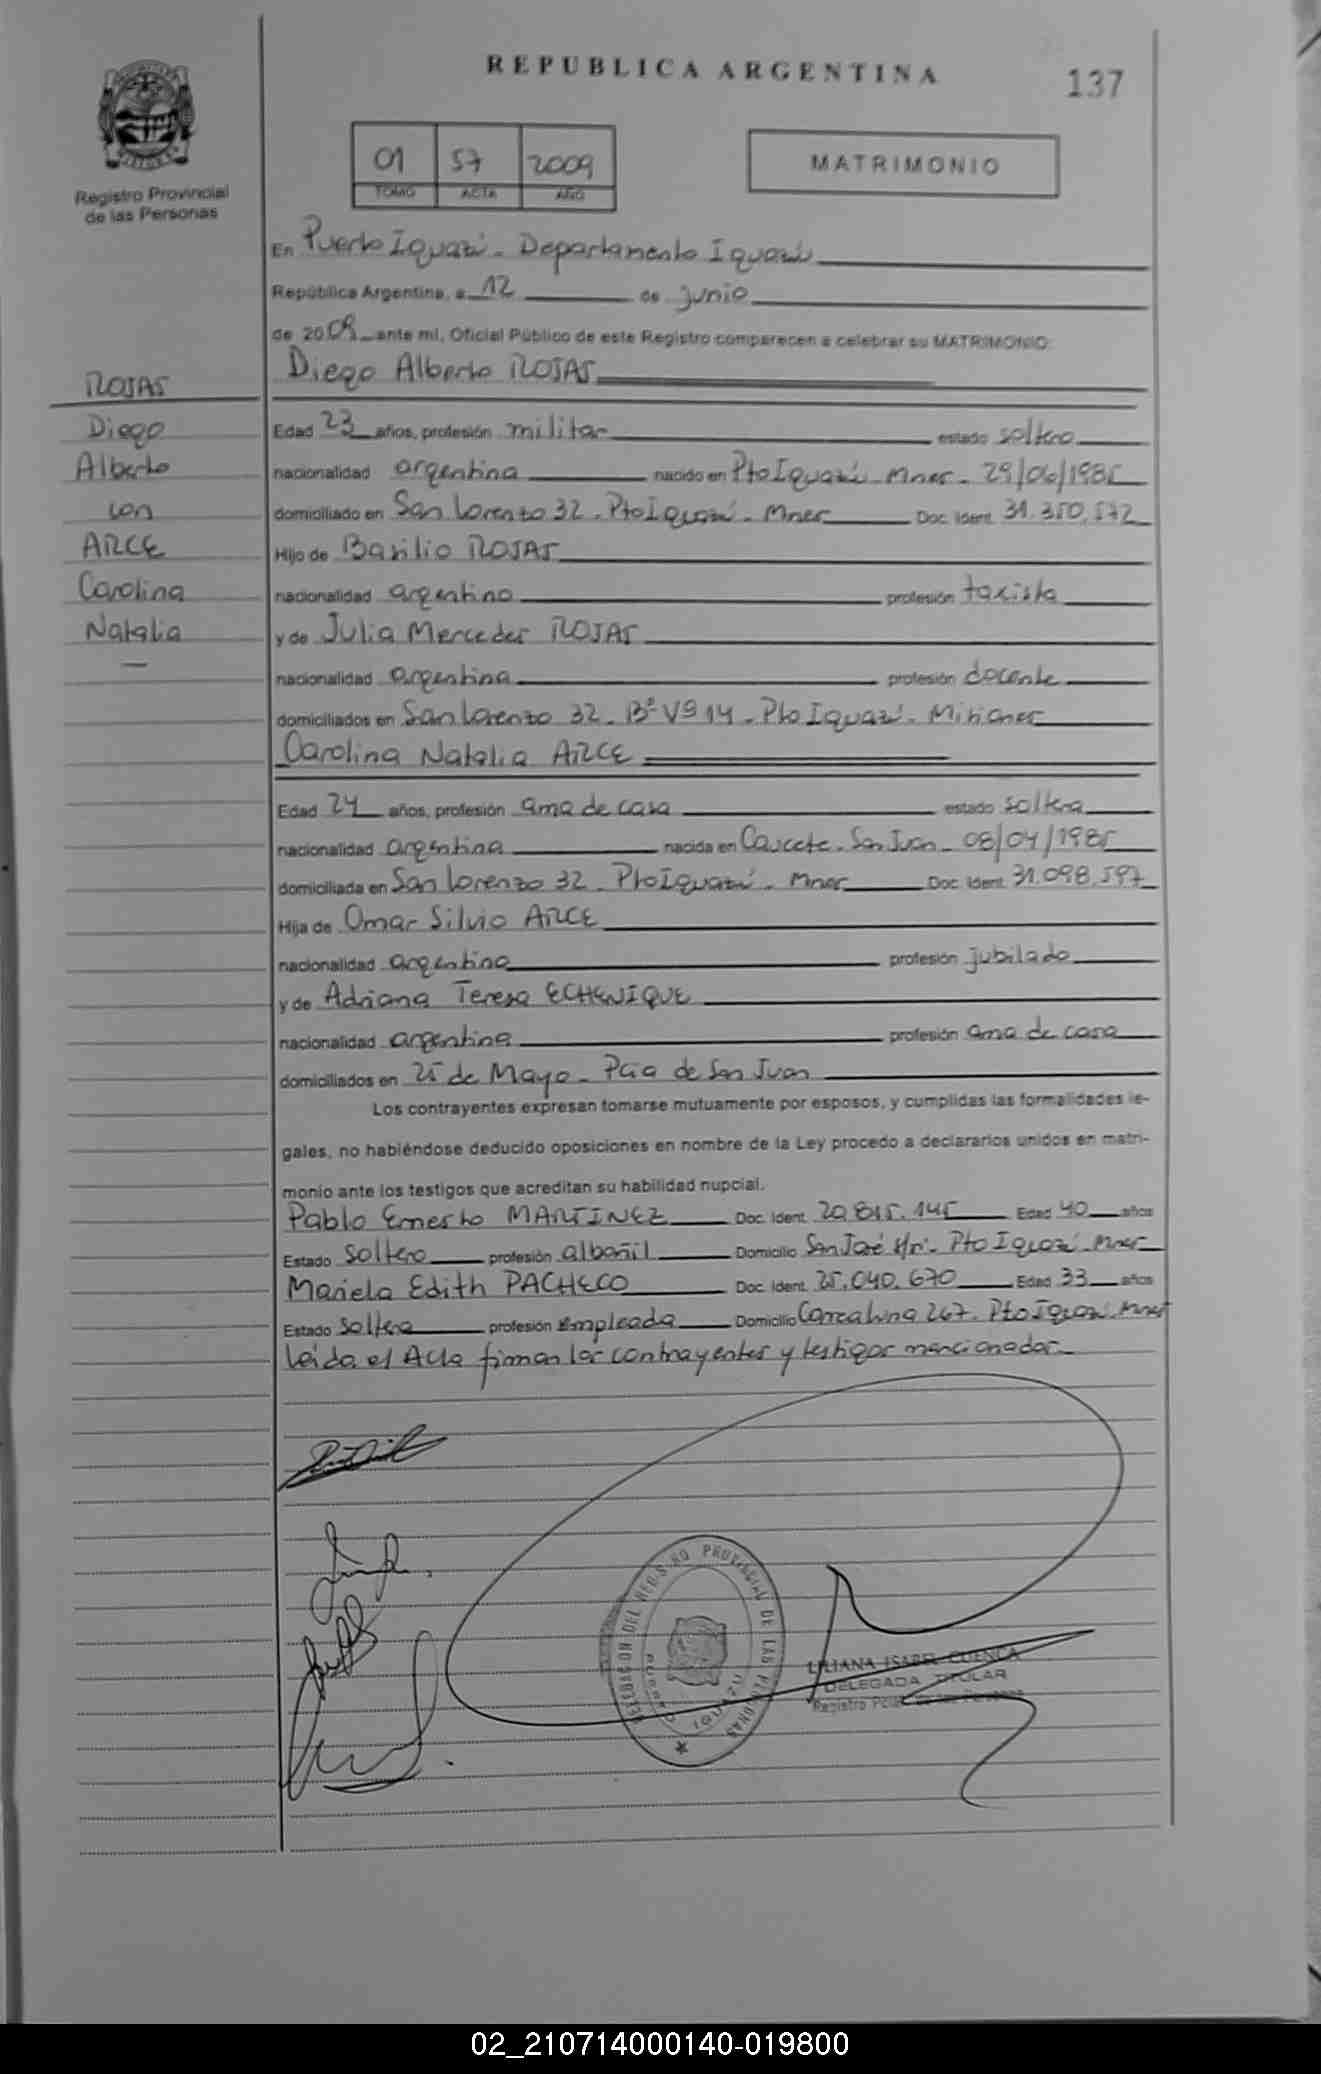 REPUBLICA ARGENTINA
137
01 57 2009
TOMO ACTA AÑO
MATRIMONIO
Registro Provincial
de las Personas
En Puerto Iguazú - Departamento Iguazú
República Argentina, a 12 de junio
de 2009 ante mi, Oficial Público de este Registro comparecen a celebrar su MATRIMONIO:
Diego Alberto ROJAS
ROJAS
Diego
Alberto
con
ARCE
Carolina
Natalia
Edad 23 años, profesión militar estado soltero
nacionalidad argentina nacido en Pto Iguazú - Mnes - 29/06/1985
domiciliado en San Lorenzo 32 - Pto Iguazú - Mnes Doc. Ident. 31.350.572
Hijo de Basilio ROJAS
nacionalidad argentino profesión taxista
y de Julia Mercedes ROJAS
nacionalidad argentina profesión docente
domiciliados en San Lorenzo 32 - Bº Vª 14 - Pto Iguazú - Misiones
Carolina Natalia ARCE
Edad 24 años, profesión ama de casa estado soltera
nacionalidad argentina nacida en Caucete - San Juan - 08/04/1985
domiciliada en San Lorenzo 32 - Pto Iguazú - Mnes Doc. Ident. 31.098.597
Hija de Omar Silvio ARCE
nacionalidad argentino profesión jubilado
y de Adriana Teresa ECHENIQUE
nacionalidad argentina profesión ama de casa
domiciliados en 25 de Mayo - Pcia de San Juan
Los contrayentes expresan tomarse mutuamente por esposos, y cumplidas las formalidades le-
gales, no habiéndose deducido oposiciones en nombre de la Ley procedo a declararlos unidos en matri-
monio ante los testigos que acreditan su habilidad nupcial.
Pablo Ernesto MARTINEZ Doc. Ident. 20.815.145 Edad 40 años
Estado soltero profesión albañil Domicilio San José s/nº - Pto Iguazú - Mnes
Mariela Edith PACHECO Doc. Ident. 25.040.670 Edad 33 años
Estado soltera profesión empleada Domicilio 267 - Pto Iguazú - Mnes
Leída el Acta firman los contrayentes y testigos mencionados.
DELEGACION DEL REGISTRO PROVINCIAL DE LAS PERSONAS
PUERTO IGUAZU
LILIANA ISABEL CUENCA
DELEGADA TITULAR
Registro
02_210714000140-019800